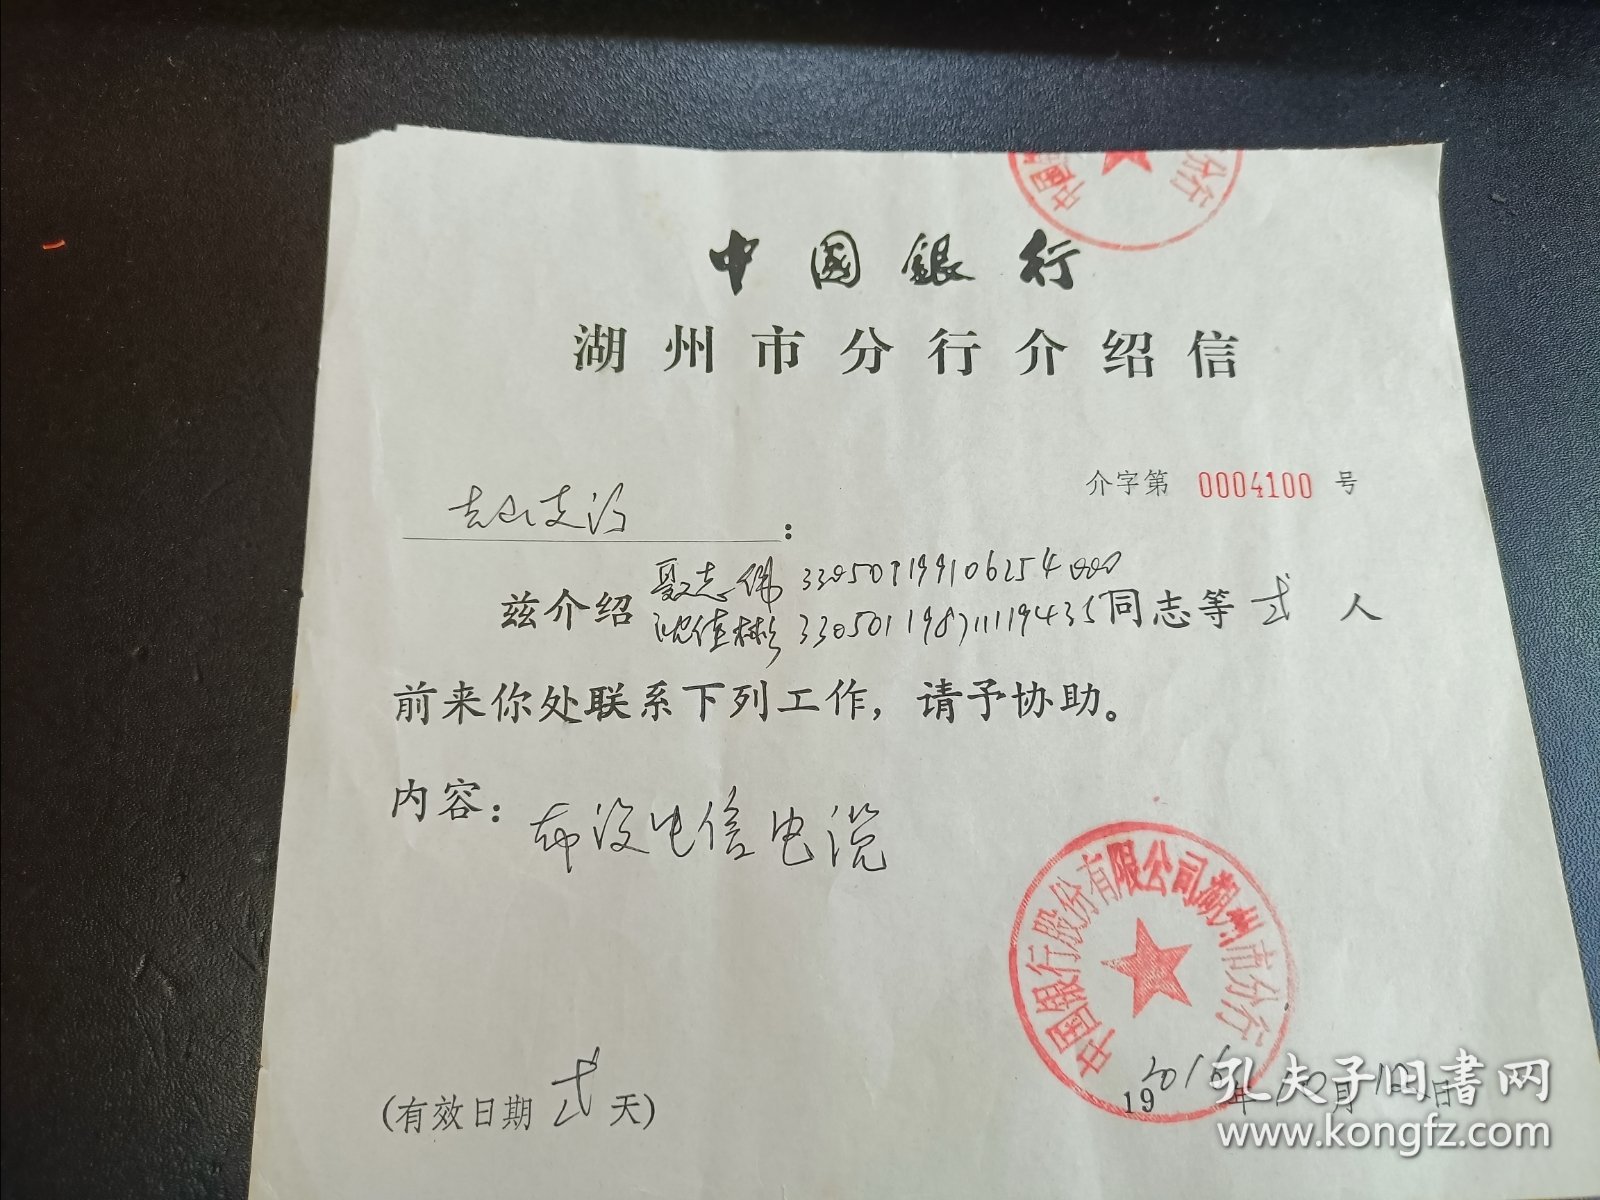 中国 分行
中國銀行
湖州市分行介绍信
介字第 0004100 号
支行:
聂志伟
兹介绍 沈佳彬 330501198711119435 同志等 弍 人
前来你处联系下列工作，请予协助。
内容：布设电信电缆
中国银行股份有限公司湖州市分行
(有效日期 弍 天)
19 2016 年 月 日
孔夫子旧書网
www.kongfz.com